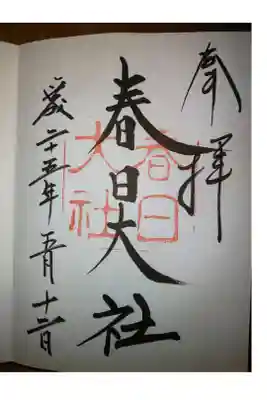 奉拝
春日大社
春日
大社
二十五年五月十日